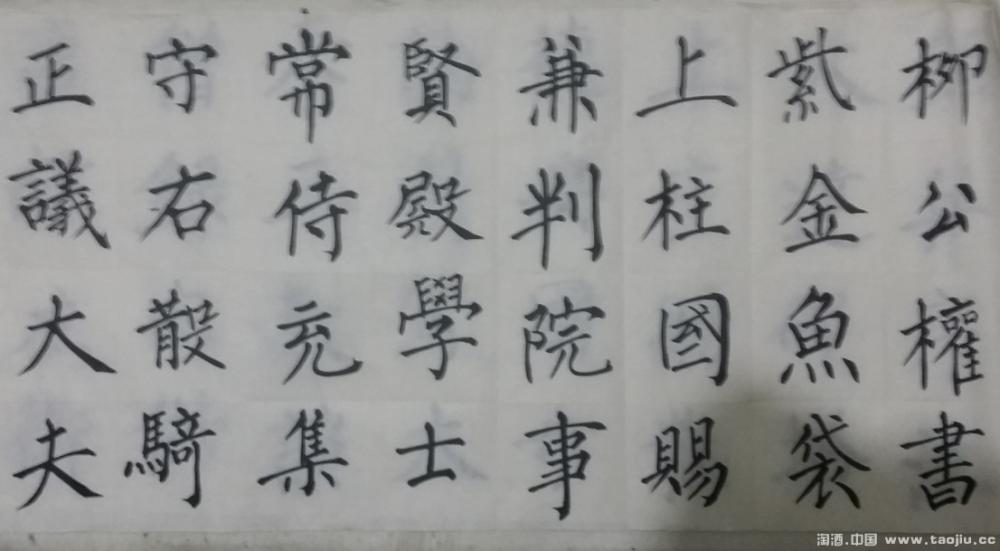 正議大夫
守右散騎
常侍充集
賢殿學士
兼判院事
上柱國賜
紫金魚袋
柳公權書
淘酒.中国 www.taojiu.cc